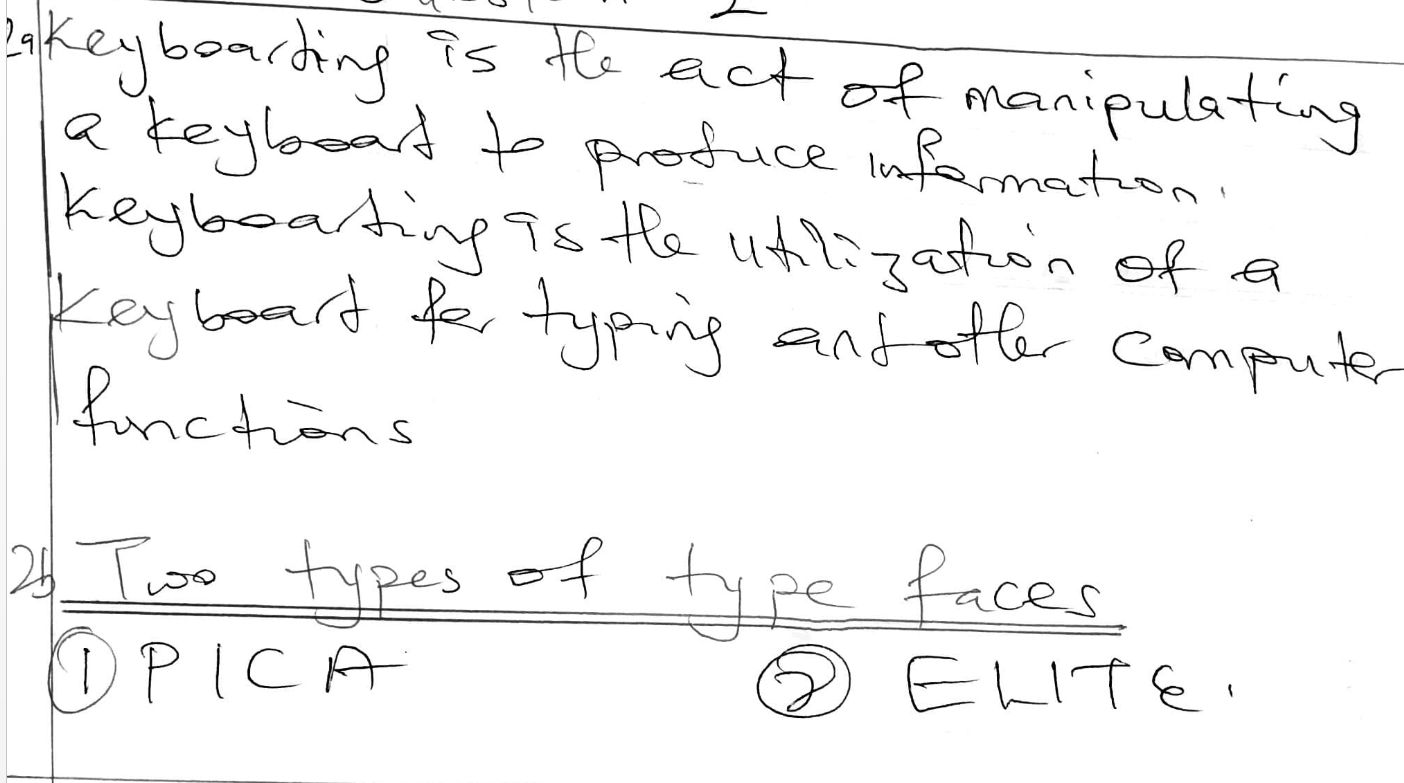 Question 2
2a Keyboarding is the act of manipulating
a keyboard to produce information.
Keyboarding is the utilization of a
Keyboard for typing and other Computer
functions
2b Two types of type faces
① PICA ② ELITE.